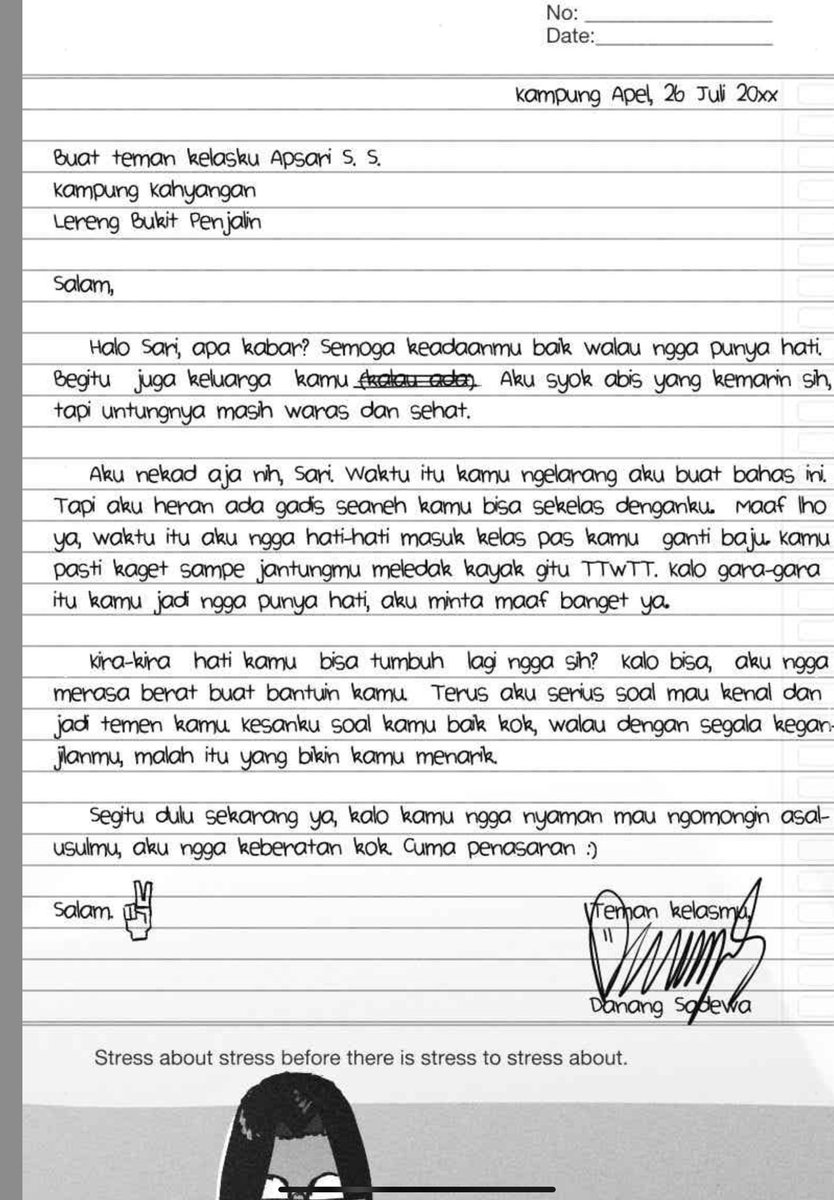 No: ____________
Date: ____________
Kampung Apel, 26 Juli 20xx
Buat teman kelasku Apsari S. S.
Kampung Kahyangan
Lereng Bukit Penjalin
Salam,
Halo Sari, apa kabar? Semoga keadaanmu baik walau ngga punya hati.
Begitu juga keluarga kamu (kalau ada). Aku syok abis yang kemarin sih,
tapi untungnya masih waras dan sehat.
Aku nekad aja nih, Sari. Waktu itu kamu ngelarang aku buat bahas ini.
Tapi aku heran ada gadis seaneh kamu bisa sekelas denganku. Maaf lho
ya, waktu itu aku ngga hati-hati masuk kelas pas kamu ganti baju. Kamu
pasti kaget sampe jantungmu meledak kayak gitu TTwTT. Kalo gara-gara
itu kamu jadi ngga punya hati, aku minta maaf banget ya.
Kira-kira hati kamu bisa tumbuh lagi ngga sih? Kalo bisa, aku ngga
merasa berat buat bantuin kamu. Terus aku serius soal mau kenal dan
jadi temen kamu. Kesanku soal kamu baik kok, walau dengan segala kegan-
jilanmu, malah itu yang bikin kamu menarik.
Segitu dulu sekarang ya, kalo kamu ngga nyaman mau ngomongin asal-
usulmu, aku ngga keberatan kok. Cuma penasaran :)
Salam.
Teman kelasmu,
Danang Sadewa
Stress about stress before there is stress to stress about.